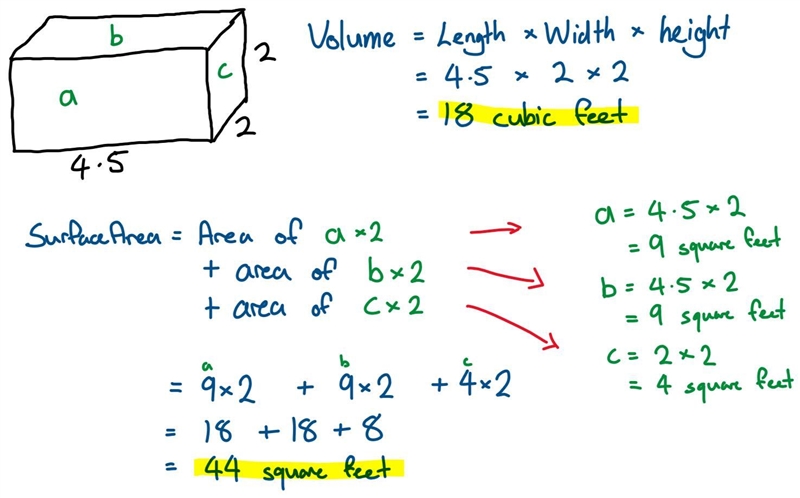 b
a
c
2
2
4.5
Volume = Length × Width × height
= 4.5 × 2 × 2
= 18 cubic feet
Surface Area = Area of a × 2
+ area of b × 2
+ area of c × 2
a = 4.5 × 2
= 9 square feet
b = 4.5 × 2
= 9 square feet
c = 2 × 2
= 4 square feet
a b c
= 9 × 2 + 9 × 2 + 4 × 2
= 18 + 18 + 8
= 44 square feet